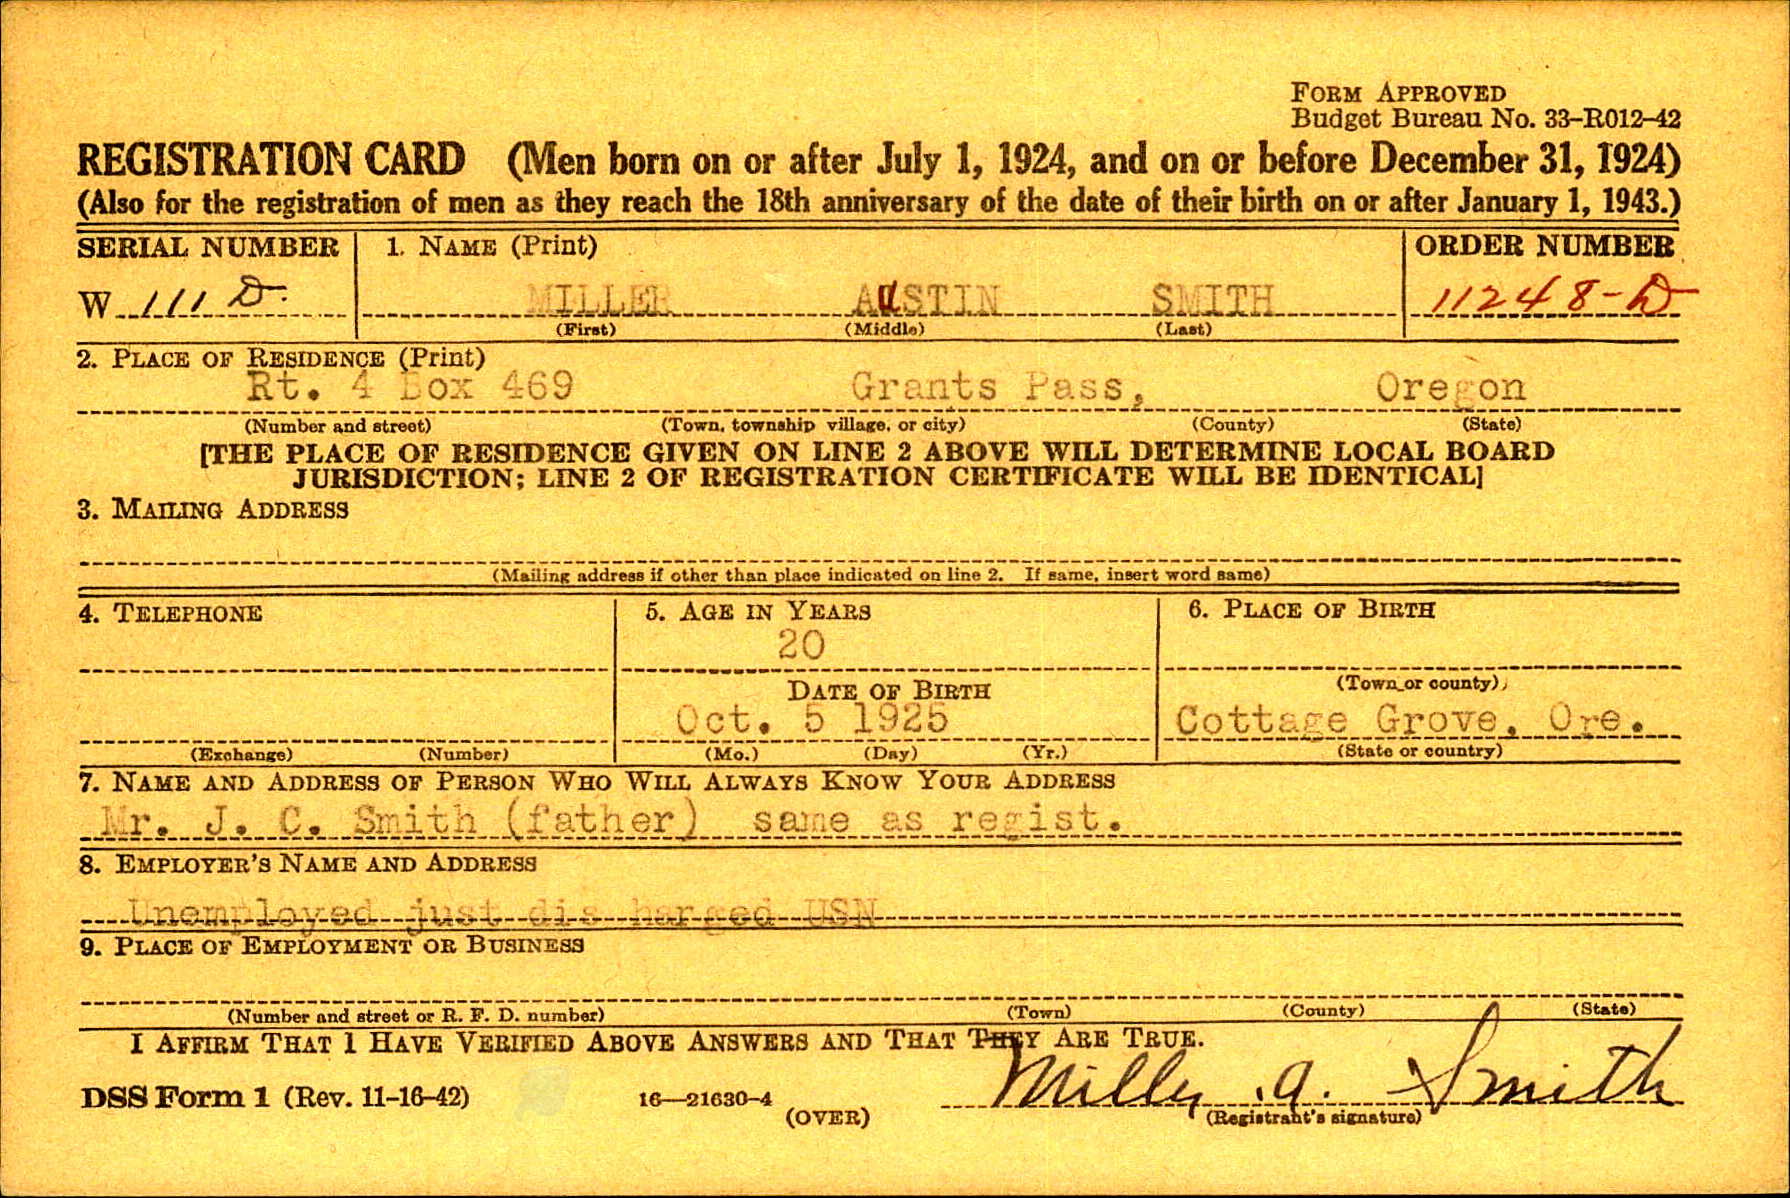 FORM APPROVED
Budget Bureau No. 33-R012-42
REGISTRATION CARD (Men born on or after July 1, 1924, and on or before December 31, 1924)
(Also for the registration of men as they reach the 18th anniversary of the date of their birth on or after January 1, 1943.)
SERIAL NUMBER 1. NAME (Print) ORDER NUMBER
W 111 D. MILLER AUSTIN SMITH 11248-D
(First) (Middle) (Last)
2. PLACE OF RESIDENCE (Print)
Rt. 4 Box 469 Grants Pass, Oregon
(Number and street) (Town, township village, or city) (County) (State)
[THE PLACE OF RESIDENCE GIVEN ON LINE 2 ABOVE WILL DETERMINE LOCAL BOARD
JURISDICTION; LINE 2 OF REGISTRATION CERTIFICATE WILL BE IDENTICAL]
3. MAILING ADDRESS
(Mailing address if other than place indicated on line 2. If same, insert word same)
4. TELEPHONE 5. AGE IN YEARS 6. PLACE OF BIRTH
20
DATE OF BIRTH (Town or county)
Oct. 5 1925 Cottage Grove, Ore.
(Exchange) (Number) (Mo.) (Day) (Yr.) (State or country)
7. NAME AND ADDRESS OF PERSON WHO WILL ALWAYS KNOW YOUR ADDRESS
Mr. J. C. Smith (father) same as regist.
8. EMPLOYER'S NAME AND ADDRESS
Unemployed just dis harged USN
9. PLACE OF EMPLOYMENT OR BUSINESS
(Number and street or R. F. D. number) (Town) (County) (State)
I AFFIRM THAT I HAVE VERIFIED ABOVE ANSWERS AND THAT THEY ARE TRUE.
DSS Form 1 (Rev. 11-16-42) 16—21630-4 Miller A. Smith
(OVER) (Registrant's signature)